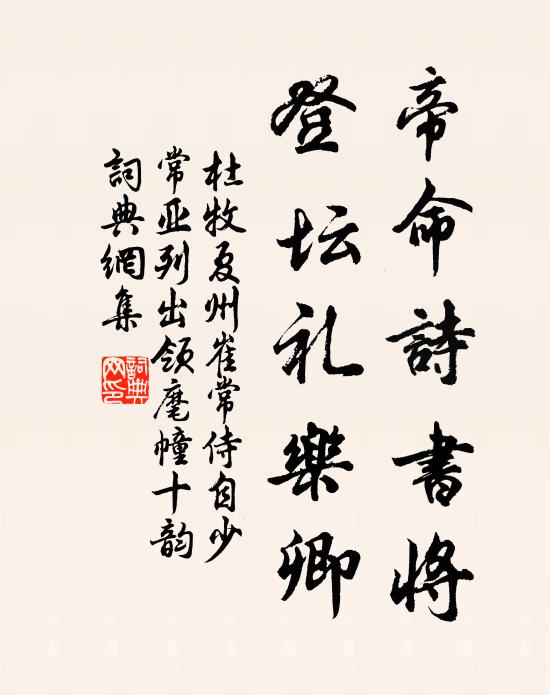 帝命詩書將
登坛礼樂卿
杜牧夏州崔常侍自少
常亚列出领麾幢十韵
詞典網集
詞典
网印